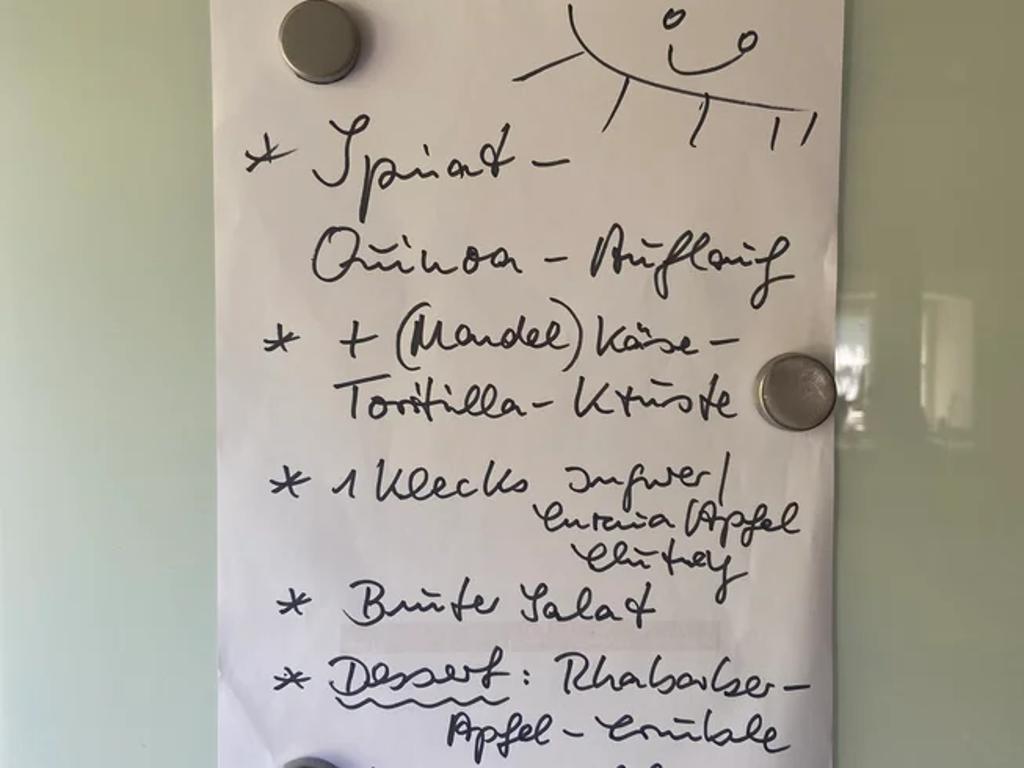 * Spinat -
Quinoa - Auflauf
* + (Mandel) Käse -
Tortilla - Kruste
* 1 Klecks Ingwer /
Curcuma / Apfel
Chutney
* Bunter Salat
* Dessert: Rhabarber -
Apfel - Crumble